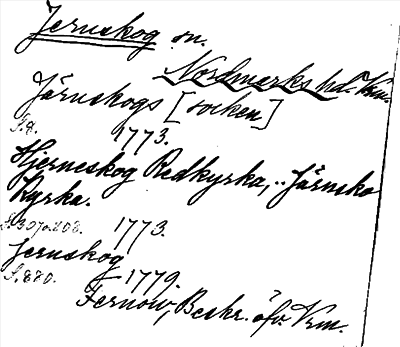 Jernskog sn.
Nordmarks hd. Vrm.
Järnskogs [socken]
S. 9. 1773.
Hjerneskog Redkyrka, .. Järnsko
Kyrka.
S. 307 o. 208. 1773.
Jernskog
S. 680. 1779.
Fernow, Beskr. öfv. Vrm.